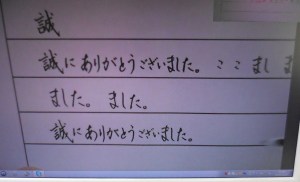 誠
誠にありがとうございました。 ここ まし ま
ました。 ました。
誠にありがとうございました。